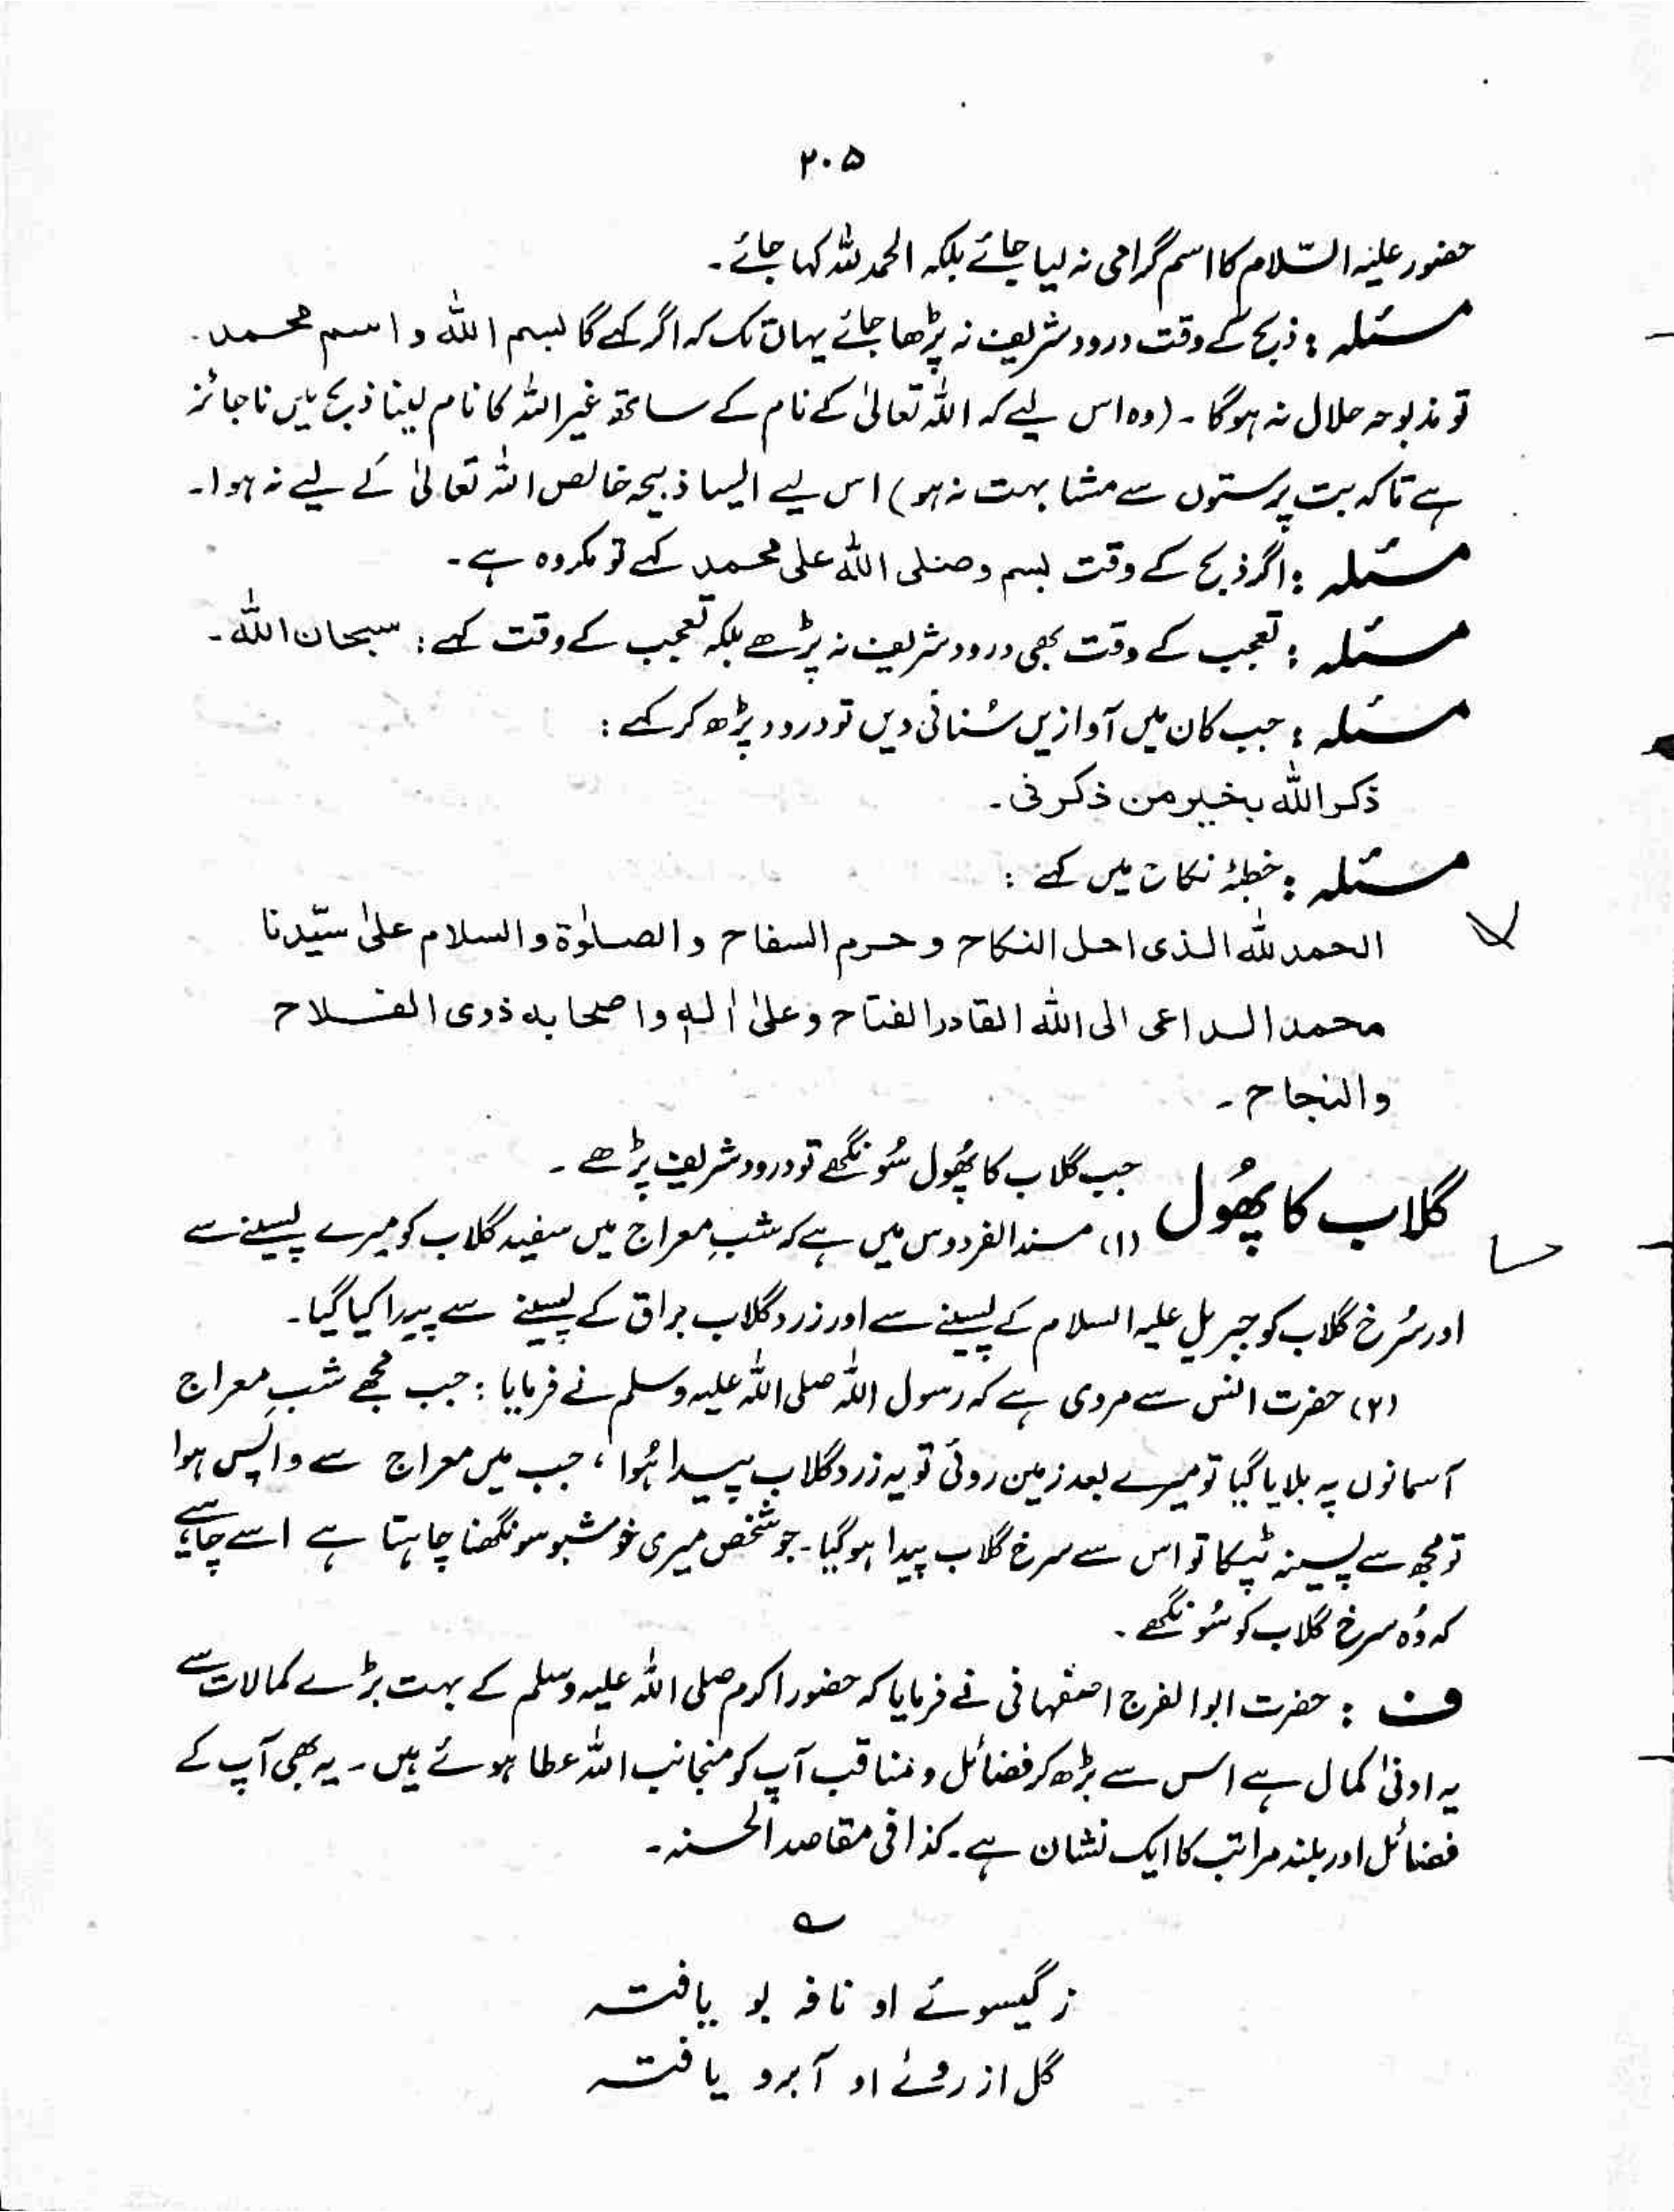 ۲۰۵
حضور علیہ السّلام کا اسم گرامی نہ لیا جائے بلکہ الحمد للہ کہا جائے۔
مسئلہ : ذبح کے وقت درود شریف نہ پڑھا جائے یہاں تک کہ اگر کہے گا بسم اللہ و اسم محمد۔
تو مذبوحہ حلال نہ ہوگا ۔ (وہ اس لیے کہ اللہ تعالیٰ کے نام کے ساتھ غیر اللہ کا نام لینا ذبح میں ناجائز
ہے تاکہ بت پرستوں سے مشابہت نہ ہو) اس لیے ایسا ذبیحہ خالص اللہ تعالیٰ کے لیے نہ ہوا۔
مسئلہ : اگر ذبح کے وقت بسم وصلی اللہ علی محمد کہے تو مکروہ ہے ۔
مسئلہ : تعجب کے وقت بھی درود شریف نہ پڑھے بلکہ تعجب کے وقت کہے : سبحان اللہ ۔
مسئلہ : جب کان میں آوازیں سُنائی دیں تو درود پڑھ کر کہے :
ذکر اللہ بخیر من ذکرنی ۔
مسئلہ : خطبۂ نکاح میں کہے :
الحمد للہ الذی احل النکاح و حرم السفاح و الصلوٰۃ و السلام علیٰ سیّدنا
محمد الداعی الی اللہ القادر الفتاح و علیٰ اٰلہٖ و اصحابہ ذوی الفلاح
والنجاح ۔
گلاب کا پھُول جب گلاب کا پھُول سُونگھے تو درود شریف پڑھے ۔
(۱) مسند الفردوس میں ہے کہ شبِ معراج میں سفید گلاب کو میرے پسینے سے
اور سُرخ گلاب کو جبریل علیہ السلام کے پسینے سے اور زرد گلاب براق کے پسینے سے پیدا کیا گیا۔
(۲) حضرت انس سے مروی ہے کہ رسول اللہ صلی اللہ علیہ وسلم نے فرمایا : جب مجھے شبِ معراج
آسمانوں پہ بلایا گیا تو میرے بعد زمین روئی تو یہ زرد گلاب پیدا ہُوا ، جب میں معراج سے واپس ہوا
تو مجھ سے پسینہ ٹپکا تو اس سے سرخ گلاب پیدا ہوگیا ۔ جو شخص میری خوشبو سونگھنا چاہتا ہے اسے چاہیے
کہ وُہ سرخ گلاب کو سُونگھے ۔
ف : حضرت ابو الفرج اصفہانی نے فرمایا کہ حضور اکرم صلی اللہ علیہ وسلم کے بہت بڑے کمالات سے
یہ ادنیٰ کمال ہے اس سے بڑھ کر فضائل و مناقب آپ کو منجانب اللہ عطا ہوئے ہیں ۔ یہ بھی آپ کے
فضائل اور بلند مراتب کا ایک نشان ہے ۔ کذا فی مقاصد الحسنہ ۔
ز گیسوئے او نافہ بو یافتہ
گل از روئے او آبرو یافتہ